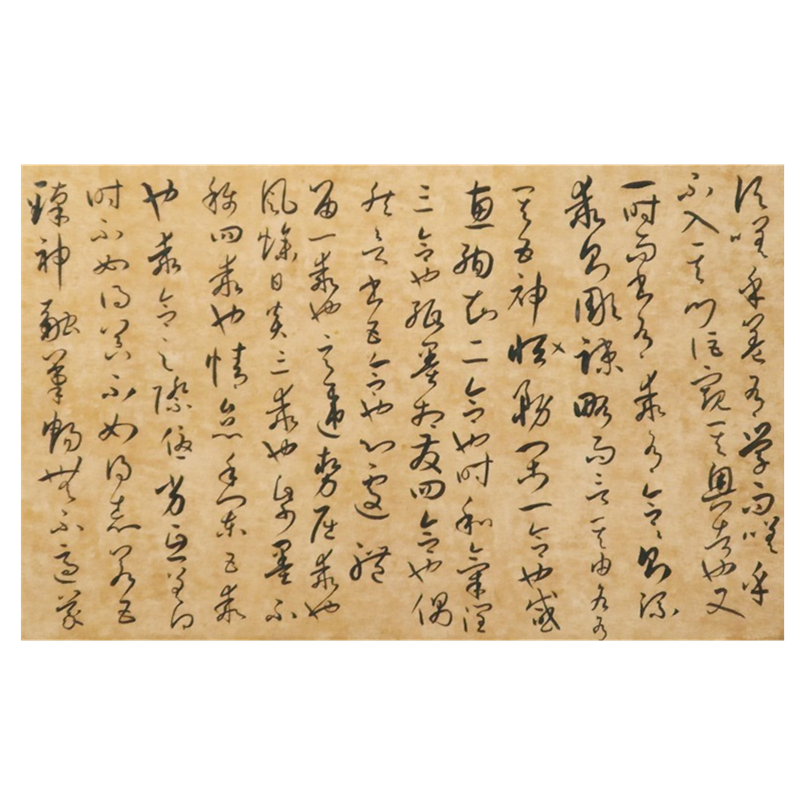 嗟乎蓋有學而嗟乎
不入其門詎窺其奧者也又
一時而書有乖有合合則流
乖則雕疎略而言其由各有
其五神怡務閑一合也感
惠徇知二合也時和氣潤
三合也紙墨相發四合也偶
然欲書五合也心遽體
留一乖也意違勢屈乖也
風燥日炎三乖也紙墨不
稱四乖也情怠手闌五乖
也乖合之際優劣互差得
時不如得器不如得志若五
臻神融筆暢無不適蒙